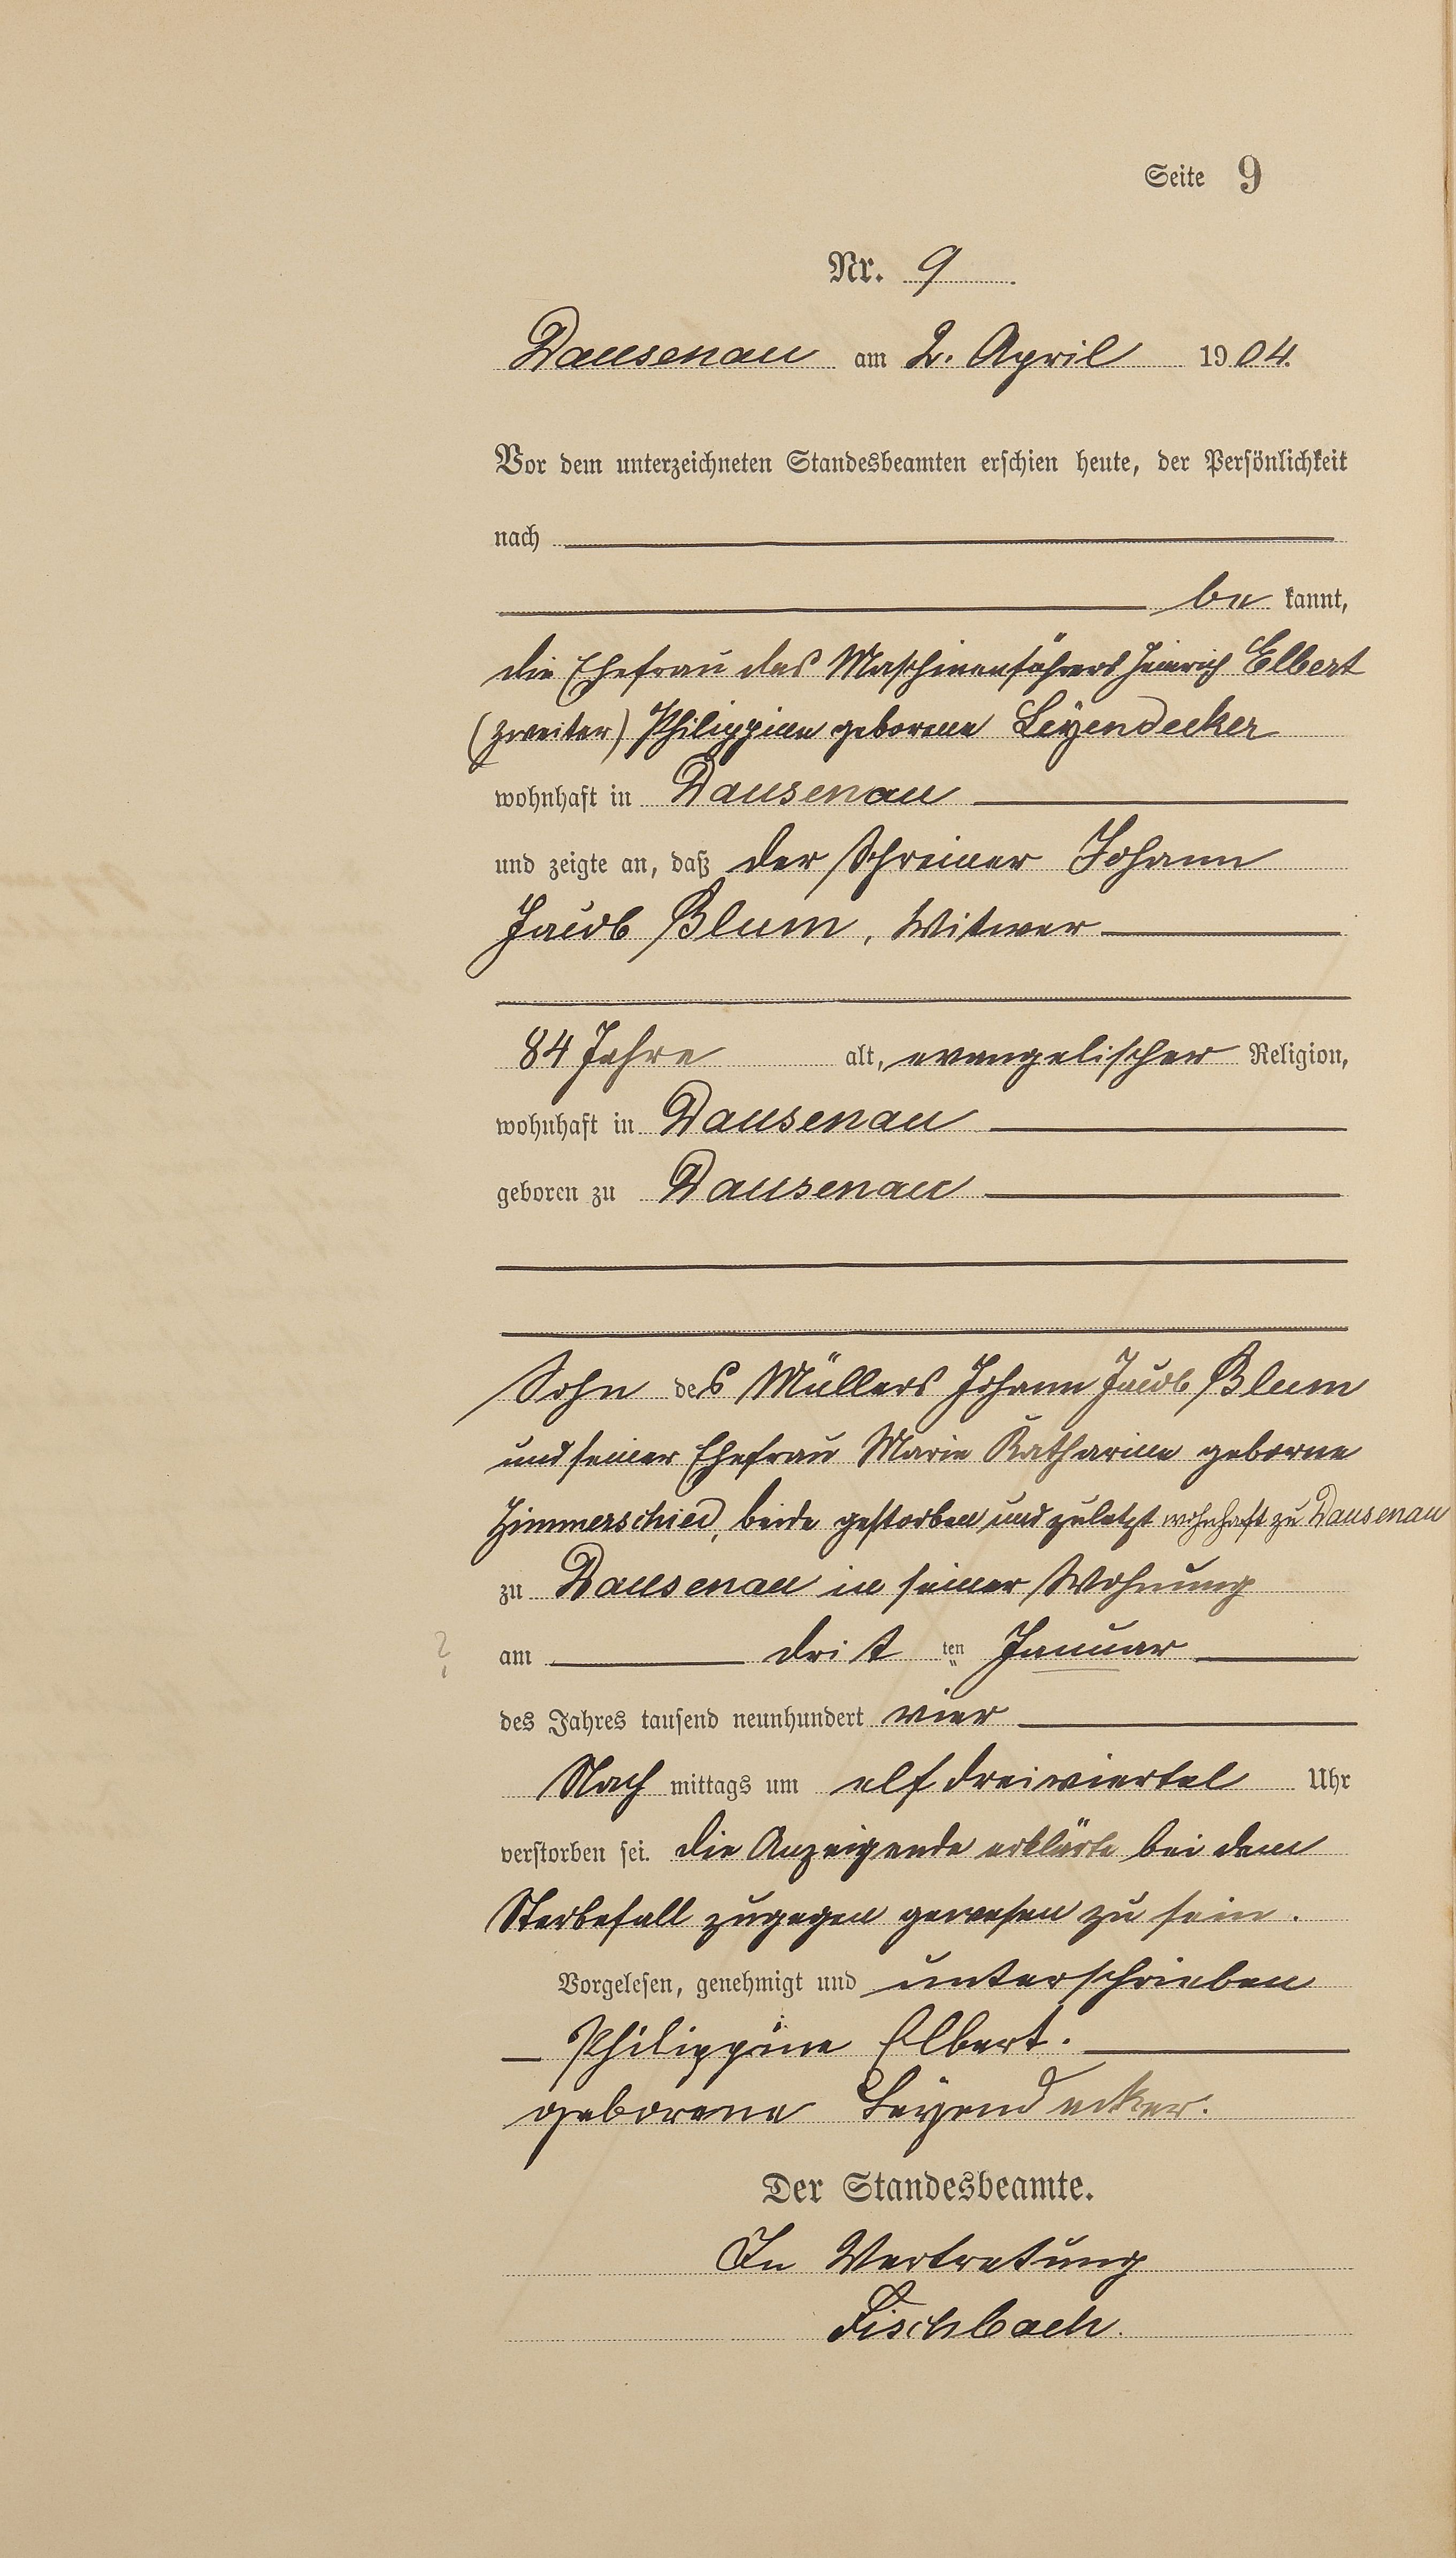 Seite 9
Nr. 9.
Dausenau am 2. April 1904.
Vor dem unterzeichneten Standesbeamten erschien heute, der Persönlichkeit
nach
be kannt,
die Ehefrau des Maschinenführers Heinrich Elbert
(zweiter) Philippine geborene Leyendecker
wohnhaft in Dausenau
und zeigte an, daß der Schreiner Johann
Jacob Blum, Witwer
84 Jahre alt, evangelischer Religion,
wohnhaft in Dausenau
geboren zu Dausenau
Sohn des Müllers Johann Jacob Blum
und seiner Ehefrau Marie Katharine geborne
Zimmerschied, beide gestorben und zuletzt wohnhaft zu Dausenau
zu Dausenau in seiner Wohnung
? am drit ten Januar
des Jahres tausend neunhundert vier
Nach mittags um elf dreiviertel Uhr
verstorben sei. Die Anzeigende erklärte bei dem
Sterbefall zugegen gewesen zu sein.
Vorgelesen, genehmigt und unterschrieben
Philippine Elbert.
geborene Leyendecker.
Der Standesbeamte.
In Vertretung
Fischbach.